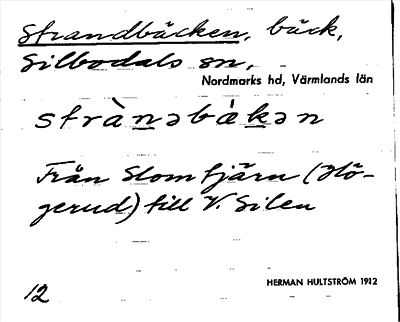 Strandbäcken, bäck,
Silbodals sn,
Nordmarks hd, Värmlands län
strànəbàkən
Från Slomtjärn (Hö-
gerud) till V. Silen
HERMAN HULTSTRÖM 1912
12